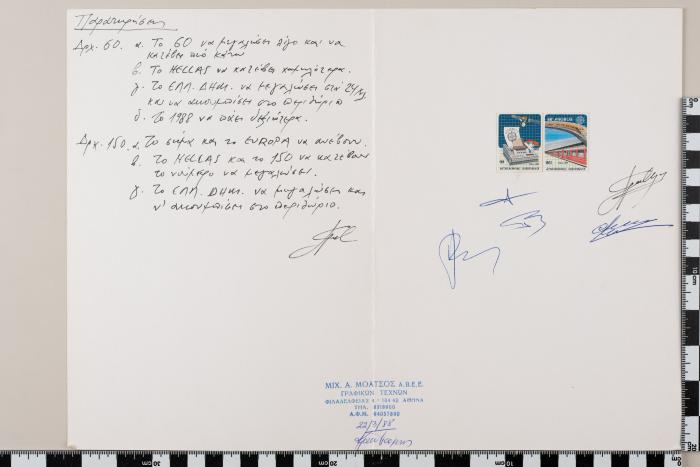 Παρατηρήσεις
Δρχ. 60. α. Το 60 να μεγαλώσει λίγο και να
κατέβει πιό κάτω
β. Το HELLAS να κατέβει χαμηλότερα.
γ. Το ΕΛΛ. ΔΗΜ. να μεγαλώσει στα
και να ακουμπήσει στο περιθώριο
δ. Το 1988 να πάει δεξιώτερα.
Δρχ. 150. α. Το σήμα και το EUROPA να ανέβουν.
β. Το HELLAS και το 150 να κατέβουν
το νούμερο να μεγαλώσει.
γ. Το ΕΛΛ. ΔΗΜ. να μεγαλώσει και
ν' ακουμπήσει στο περιθώριο.
ΜΙΧ. Α. ΜΟΑΤΣΟΣ Α.Β.Ε.Ε.
ΓΡΑΦΙΚΩΝ ΤΕΧΝΩΝ
ΦΙΛΑΔΕΛΦΕΙΑΣ 4 - 104 42 ΑΘΗΝΑ
ΤΗΛ.
Α.Φ.Μ.
22/3/88